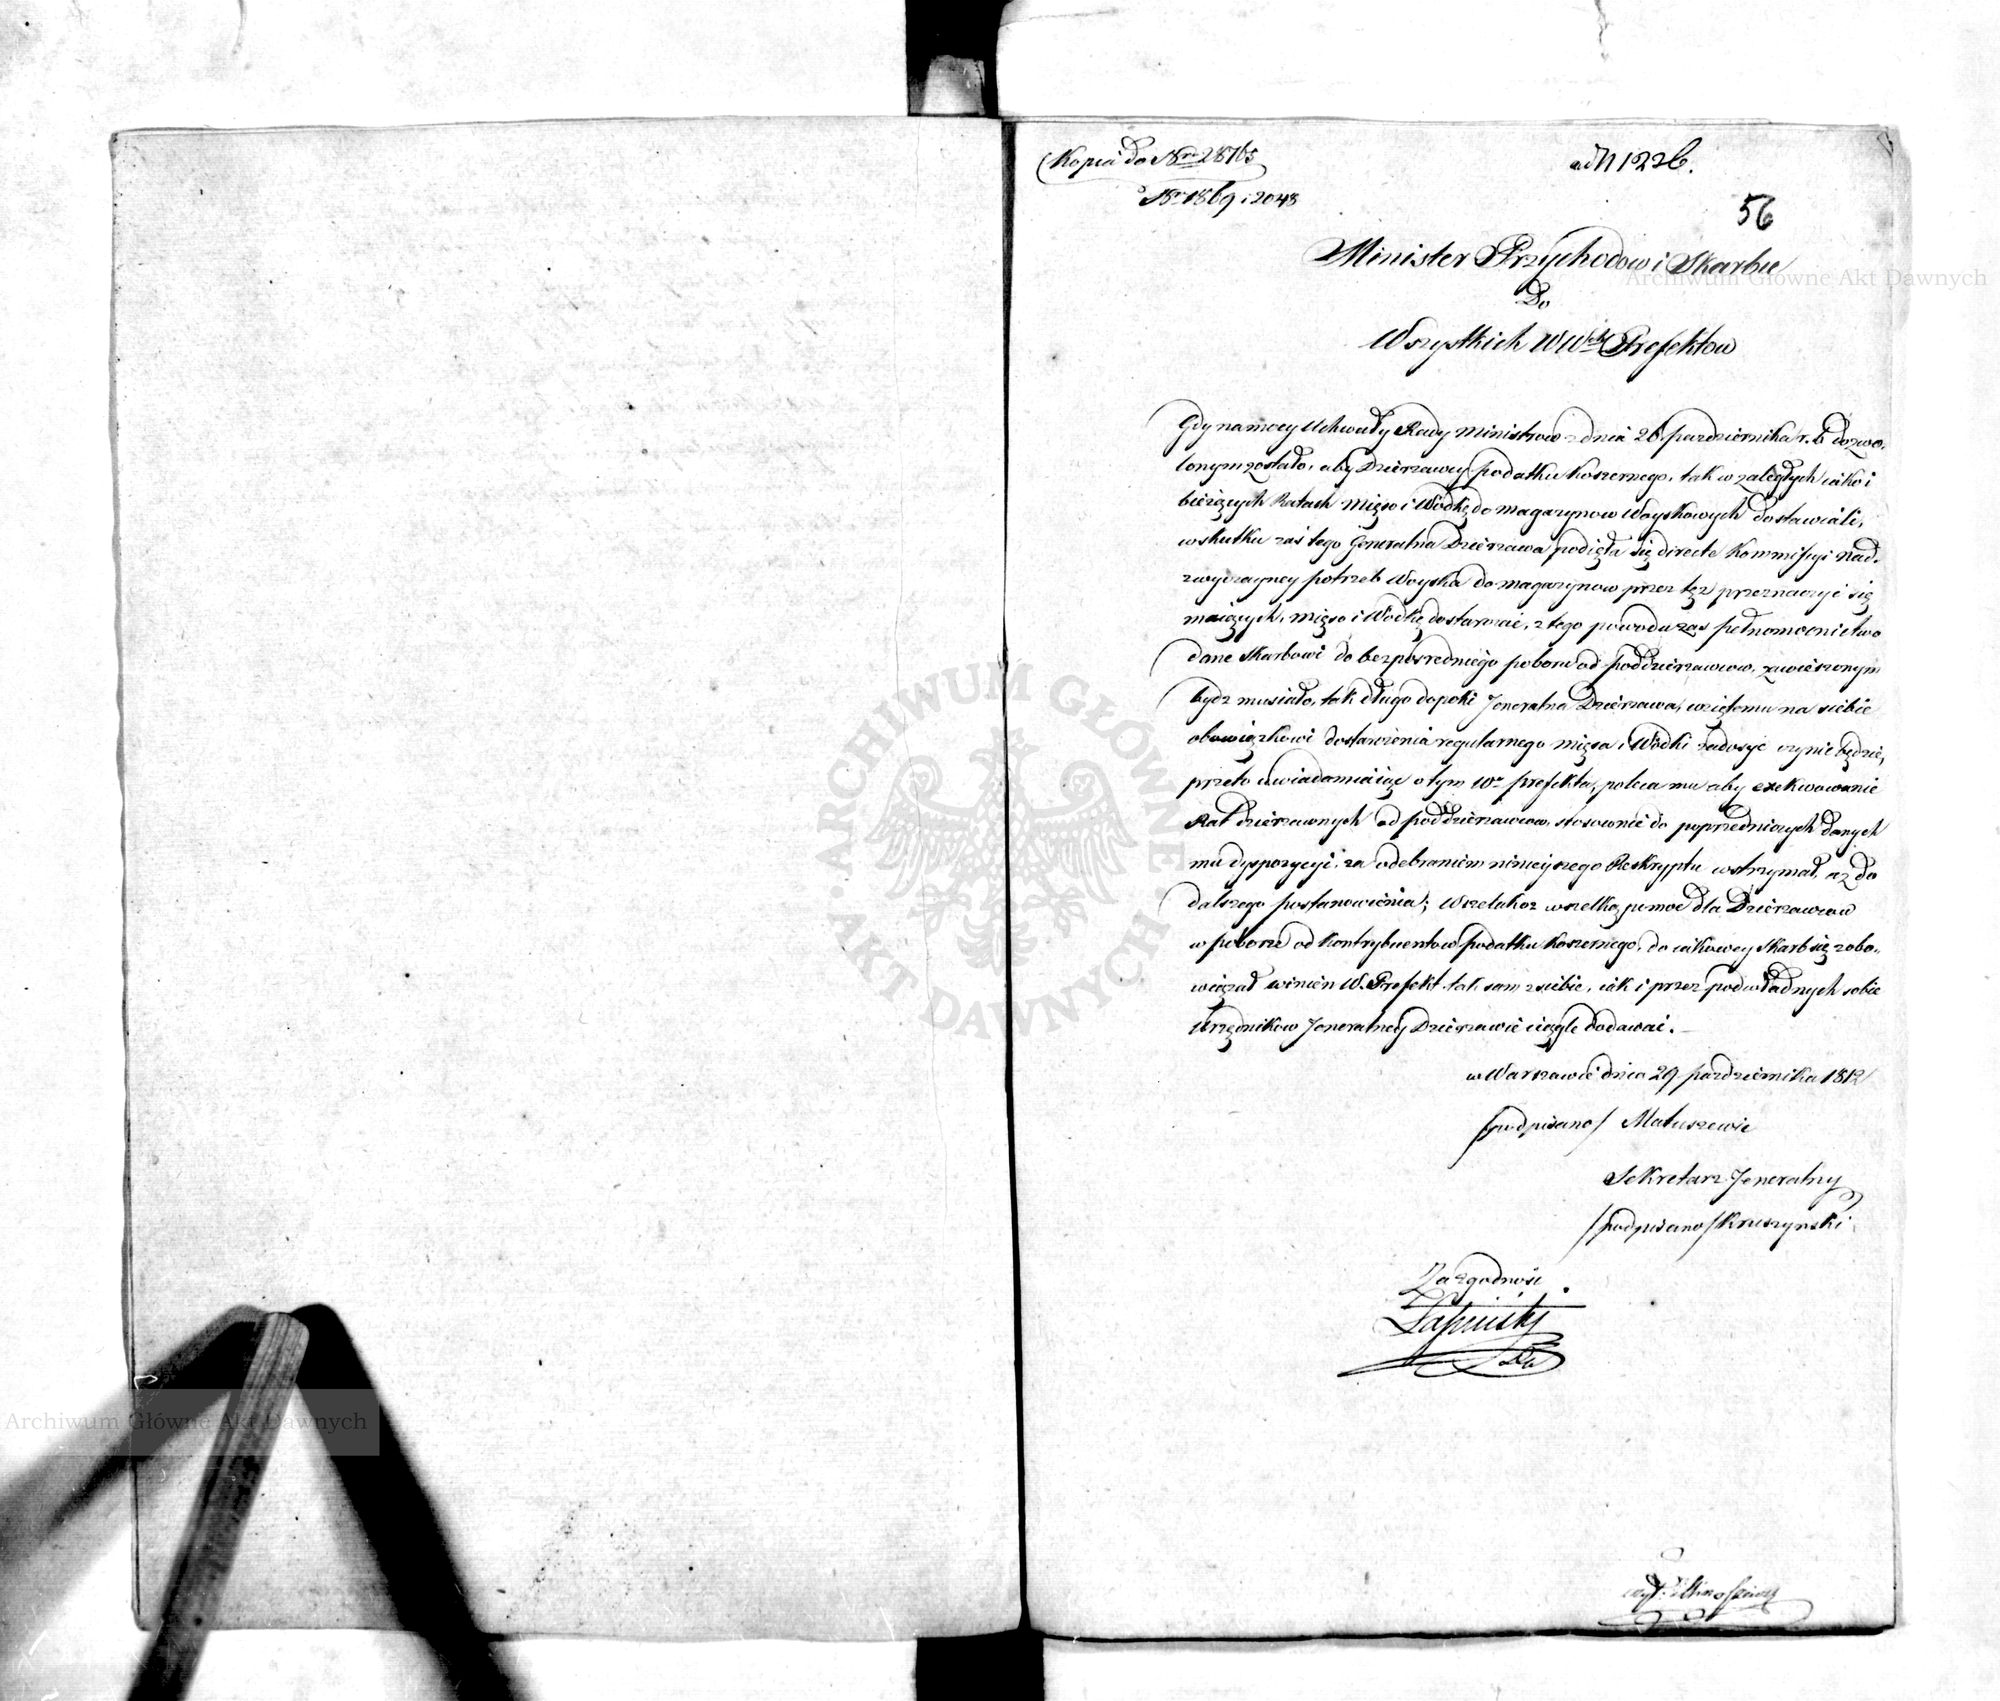 Kopia do Nro 28765
Nro 1869 i 2048
ad N 1226.
56
Minister Przychodow i Skarbu
Do
Wszystkich WWch Prefektow
Gdy na mocy Uchwały Rady Ministrow z dnia 26 pazdziernika r. b dozwo-
lonym zostało, aby Dzierzawcy podatku koszernego, tak w zaległych iako i
bieżących Ratach Mięso i Wódkę do magazynow Woyskowych dostawiali,
w skutku zaś tego Generalna Dzierzawa podięła się directe Kommissyi Nad-
zwyczayney potrzeb Woyska do magazynow przez tęż przeznaczyć się
maiących, mięso i Wodkę dostarczać, z tego powodu zaś pełnomocnictwo
dane Skarbowi do bezposredniego poboru od poddzierzawcow, zawieszonym
bydz musiało, tak długo dopoki Jeneralna Dzierzawa, wziętemu na siebie
obowiązkowi dostarczenia regularnego mięsa i Wódki zadosyć czynić będzie,
przeto uwiadamiaiąc o tym Wo prefekta, poleca mu aby exekwowanie
Rat dzierzawnych od poddzierzawcow, stosownie do poprzedniczych danych
mu dyspozycyi, za odebraniem ninieyszego Reskryptu wstrzymał, aż do
dalszego postanowienia; Wszelakoz wszelką pomoc dla Dzierzawcow
w poborze od Kontrybuentow podatku Koszernego, do iakowey Skarb się zobo-
wiązał winien W. Prefekt tak sam z siebie, iak i przez podwładnych sobie
Urzędnikow Jeneralney Dzierzawie ciągle dodawać.
w Warszawie dnia 29 pazdziernika 1812
/podpisano/ Matuszewic
Sekretarz Jeneralny
/podpisano/ Kruszynski
Za zgodność
Łapiński
Archiwum Główne Akt Dawnych
ARCHIWUM GŁÓWNE AKT DAWNYCH
Archiwum Główne Akt Dawnych